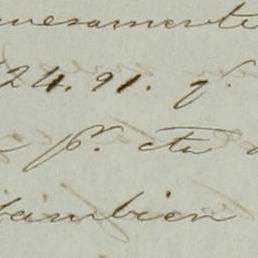 uesamente
24. 91. q.
pr. cta
tambien